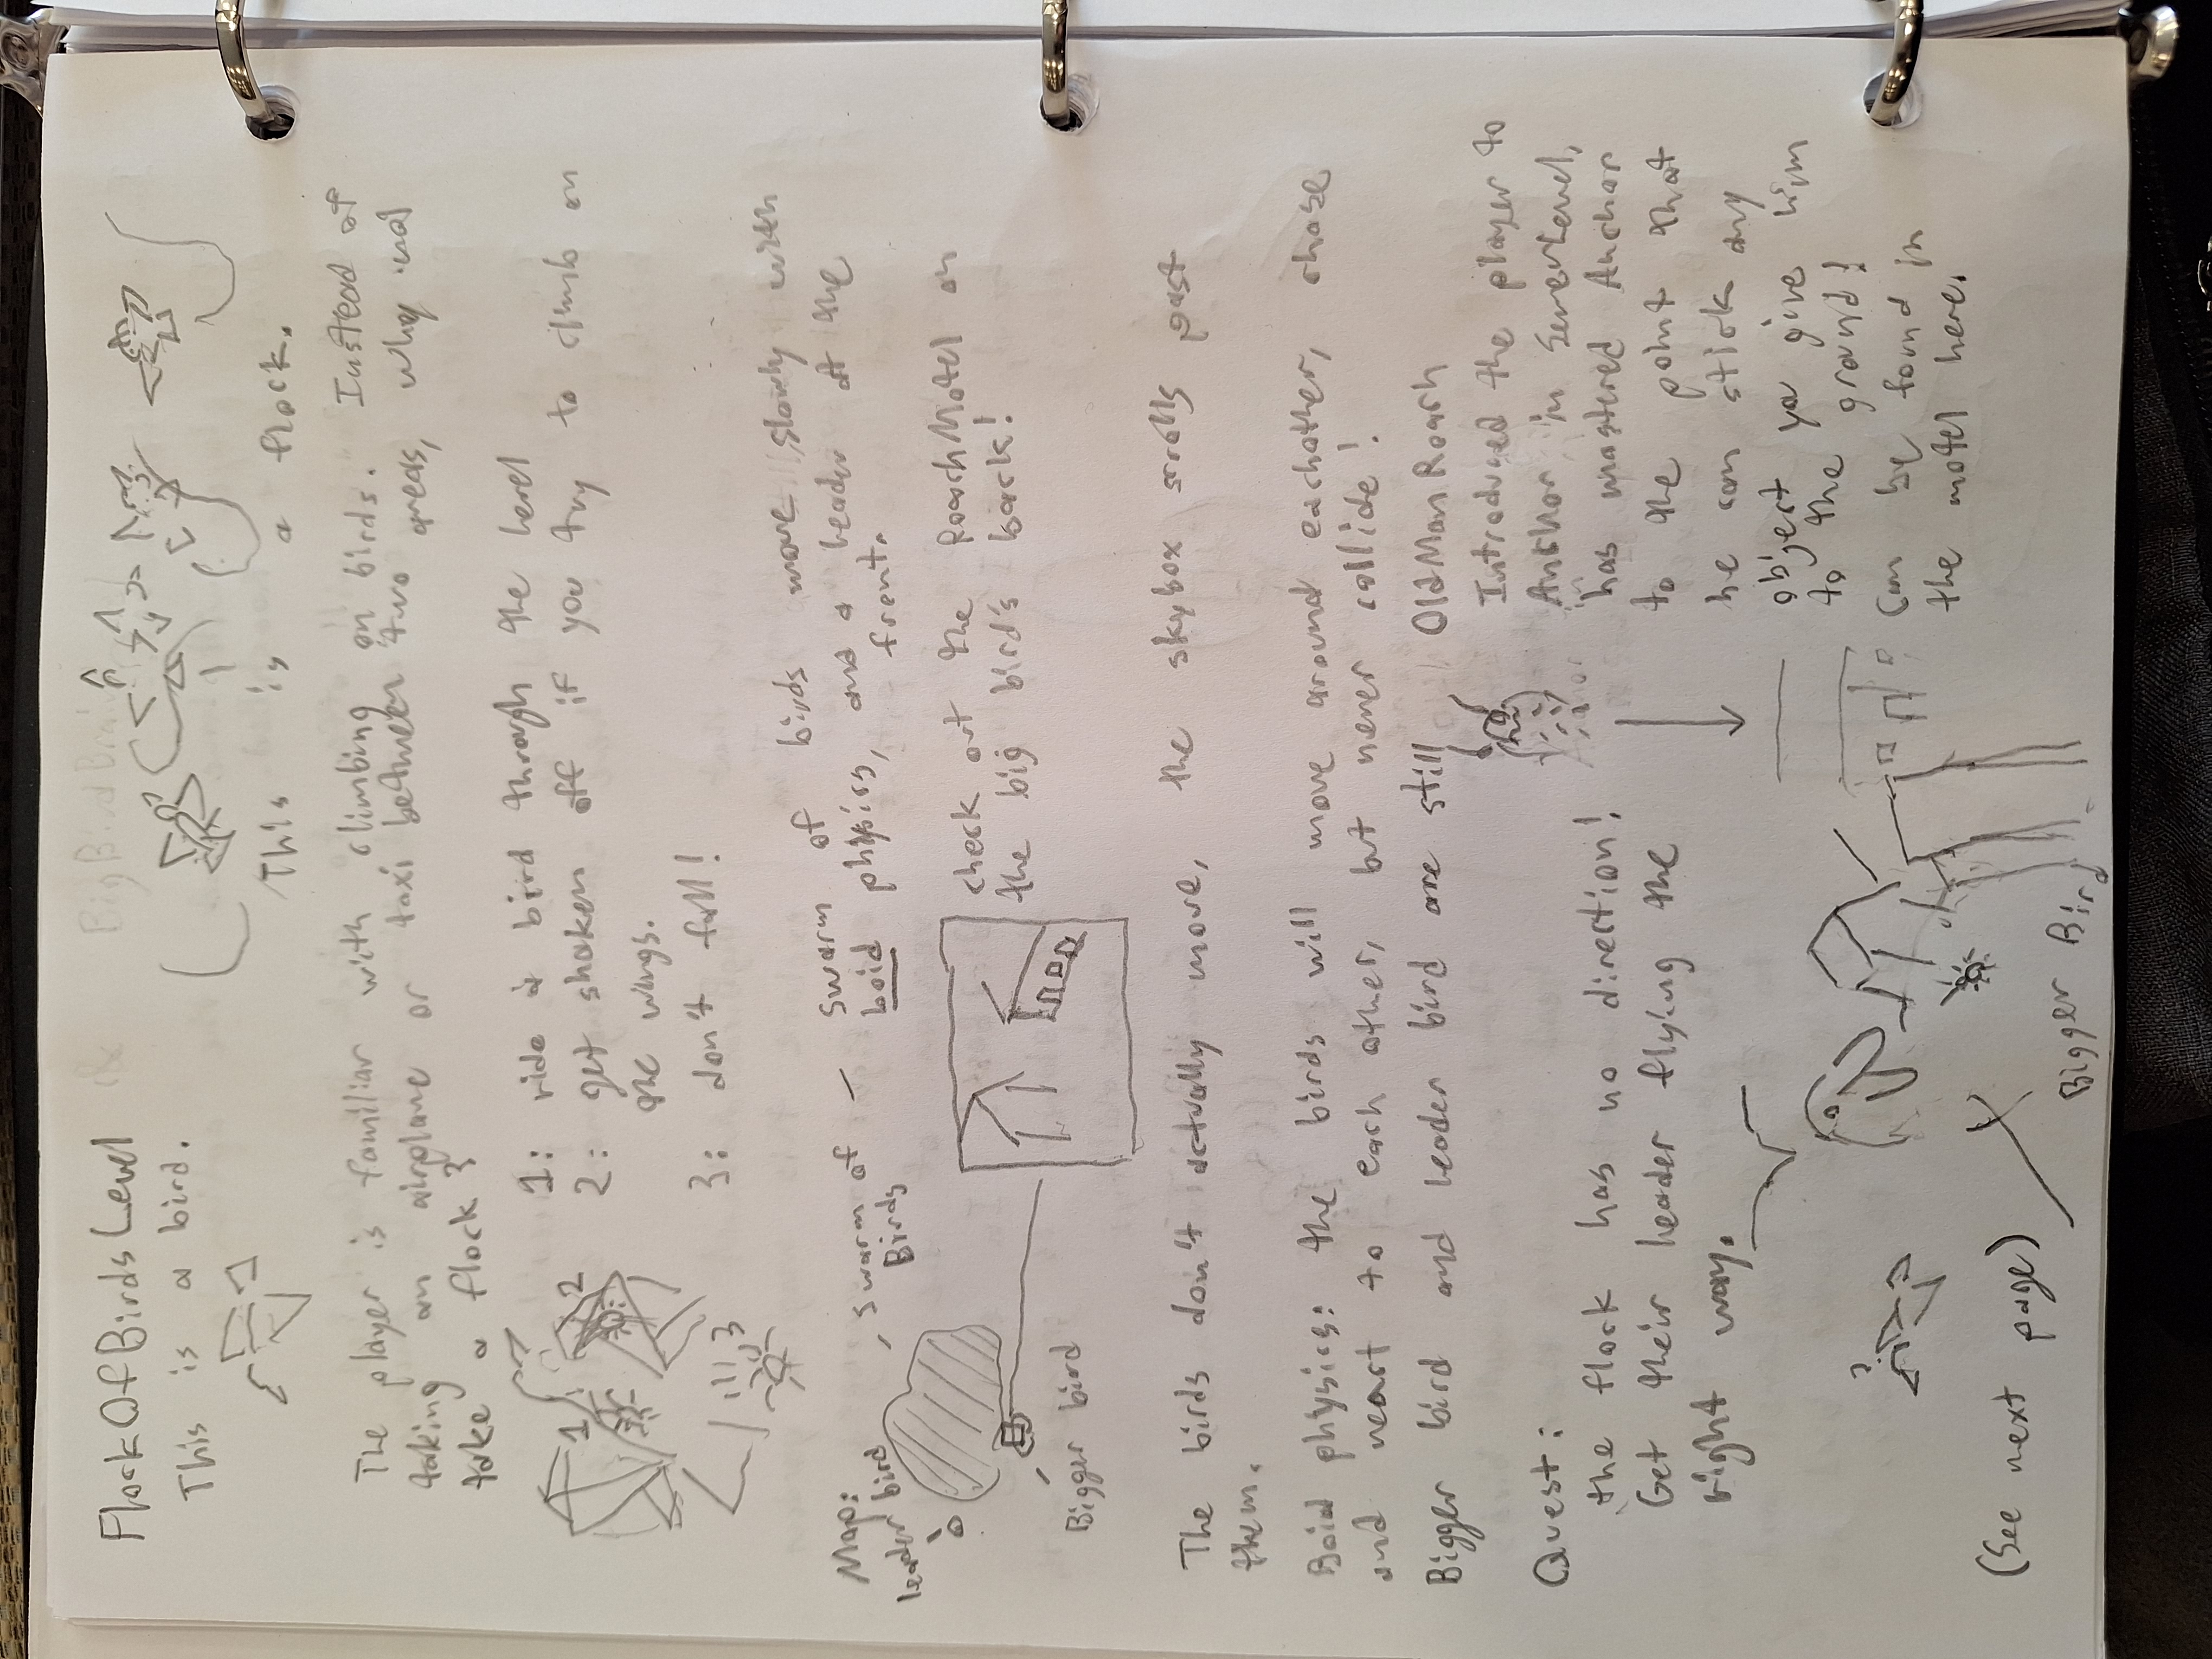 FlockOfBirdsLevel
This is a bird.
This is a flock.
The player is familiar with climbing on birds. Instead of
taking an airplane or taxi between two areas, why not
take a flock?
1: ride a bird through the level
2: get shaken off if you try to climb on
the wings.
3: don't fall!
1
2
3
Map:
leader bird
swarm of
Birds
Bigger bird
swarm of birds move slowly with
boid physics, and a leader at the
front.
check out the RoachMotel on
the big bird's back!
The birds don't actually move, the skybox scrolls past
them.
Boid physics: the birds will move around eachother, chase
and near to each other, but never collide!
Bigger bird and leader bird are still
Quest:
the flock has no direction!
Get their leader flying the
right way.
?
(See next page)
Bigger Bird
OldManRoach
Introduced the player to
Anchor in SewerLevel,
has mastered Anchor
to the point that
he can stick any
object you give him
to the ground!
Can be found in
the motel here.